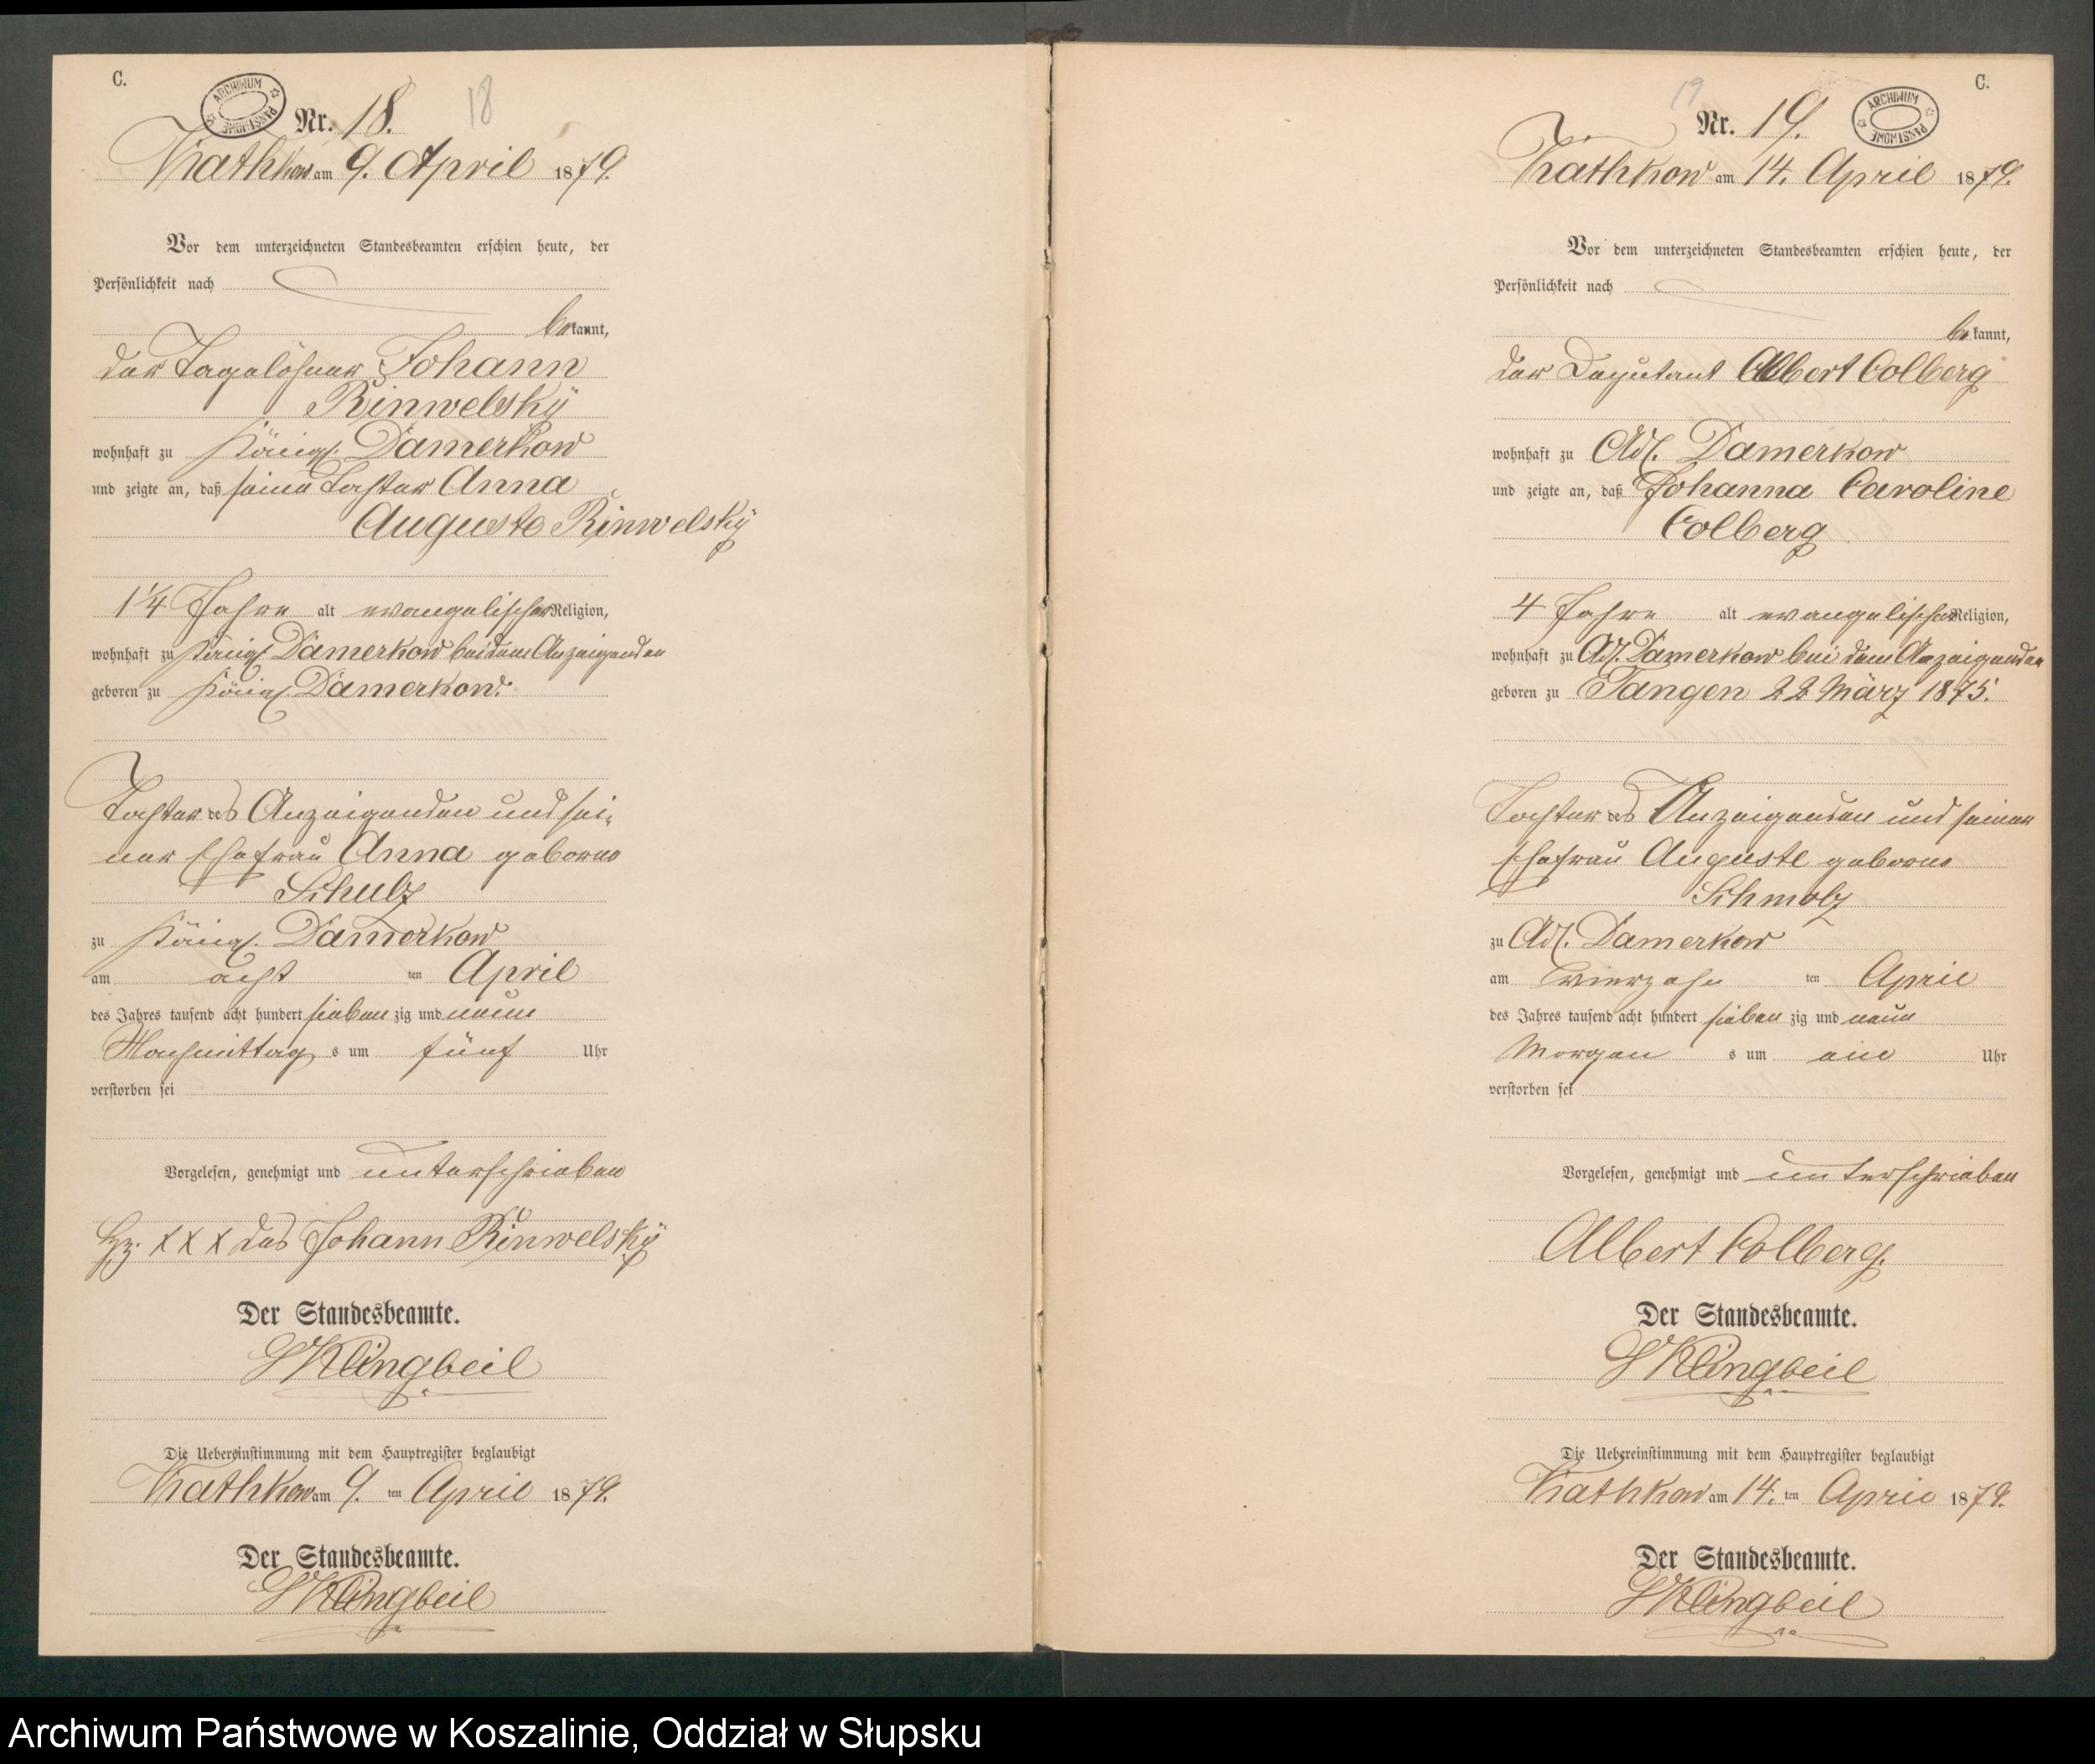 C.
ARCHIWUM PAŃSTWOWE
Nr. 18. 18
am 9. April 1879.
Vor dem unterzeichneten Standesbeamten erschien heute, der
Persönlichkeit nach
bekannt,
der Tagelöhner Johann
Rinwelsky
wohnhaft zu Königl. Damerkow
und zeigte an, daß seine Tochter Anna
Auguste Rinwelsky
1 1/4 Jahre alt evangelischer Religion,
wohnhaft zu Königl. Damerkow bei dem Anzeigenden
geboren zu Königl. Damerkow.
Tochter des Anzeigenden und sei-
ner Ehefrau Anna geborne
Schulz
zu Königl. Damerkow
am acht ten April
des Jahres tausend acht hundert sieben zig und neun
Nachmittag s um fünf Uhr
verstorben sei
Vorgelesen, genehmigt und unterschrieben
Hz. XXX des Johann Rinwelsky
Der Standesbeamte.
Klingbeil
Die Uebereinstimmung mit dem Hauptregister beglaubigt
am 9. ten April 1879.
Der Standesbeamte.
Klingbeil
C.
19
Nr. 19.
ARCHIWUM PAŃSTWOWE
am 14. April 1879.
Vor dem unterzeichneten Standesbeamten erschien heute, der
Persönlichkeit nach
bekannt,
der Deputant Albert Colberg
wohnhaft zu Adl. Damerkow
und zeigte an, daß Johanna Caroline
Colberg
4 Jahre alt evangelischer Religion,
wohnhaft zu Adl. Damerkow bei dem Anzeigenden
geboren zu Tangen 22 März 1875.
Tochter des Anzeigenden und seiner
Ehefrau Auguste geborne
Schmolz
zu Adl. Damerkow
am vierzehn ten April
des Jahres tausend acht hundert sieben zig und neun
Morgen s um ein Uhr
verstorben sei
Vorgelesen, genehmigt und unterschrieben
Albert Colberg.
Der Standesbeamte.
Klingbeil
Die Uebereinstimmung mit dem Hauptregister beglaubigt
am 14. ten April 1879.
Der Standesbeamte.
Klingbeil
Archiwum Państwowe w Koszalinie, Oddział w Słupsku